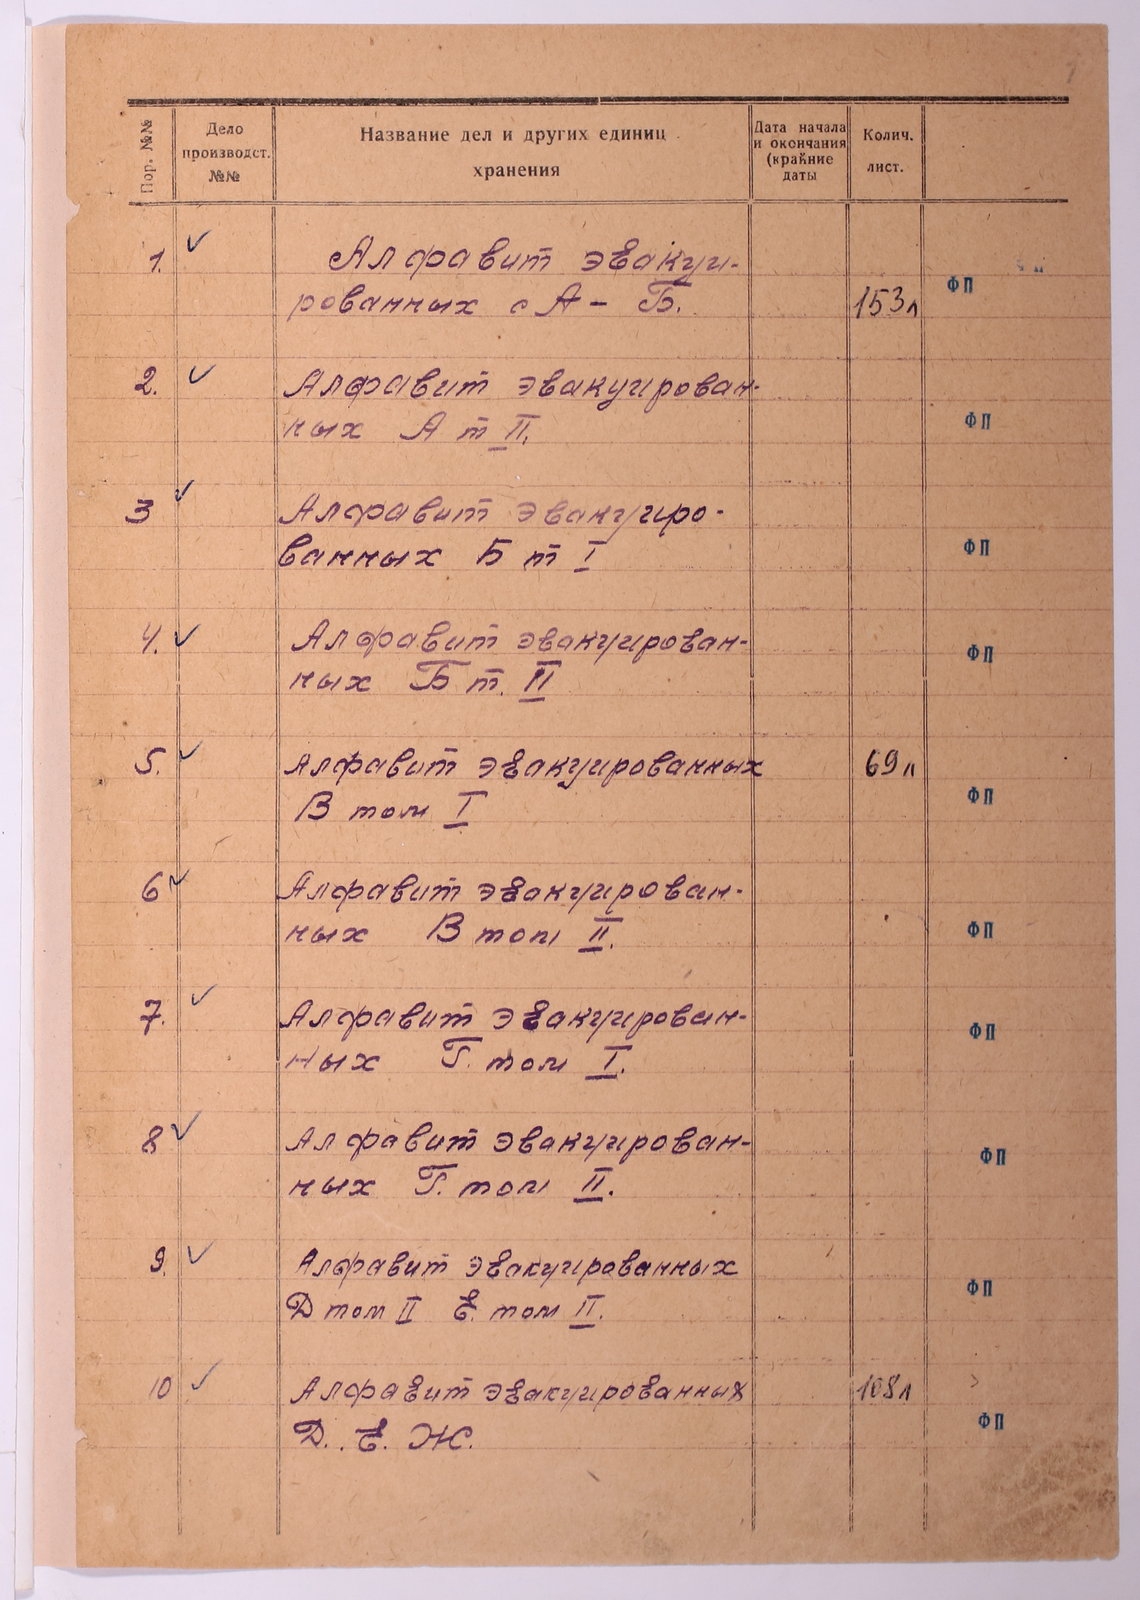 Пор. №№
Дело
производст.
№№
Название дел и других единиц
хранения
Дата начала
и окончания
(крайние
даты
Колич.
лист.
1. Алфавит эвакуи-
рованных с А – Б. 153л ФП
2. Алфавит эвакуирован-
ных А т II. ФП
3 Алфавит эвакуиро-
ванных Б т I ФП
4. Алфавит эвакуирован-
ных Б т. II ФП
5. Алфавит эвакуированных 69л
В том I ФП
6 Алфавит эвакуирован-
ных В том II. ФП
7. Алфавит эвакуирован-
ных Г. том I. ФП
8 Алфавит эвакуирован-
ных Г. том II. ФП
9. Алфавит эвакуированных
Д том II Е. том II. ФП
10 Алфавит эвакуированных 108л
Д. . Е. Ж. ФП